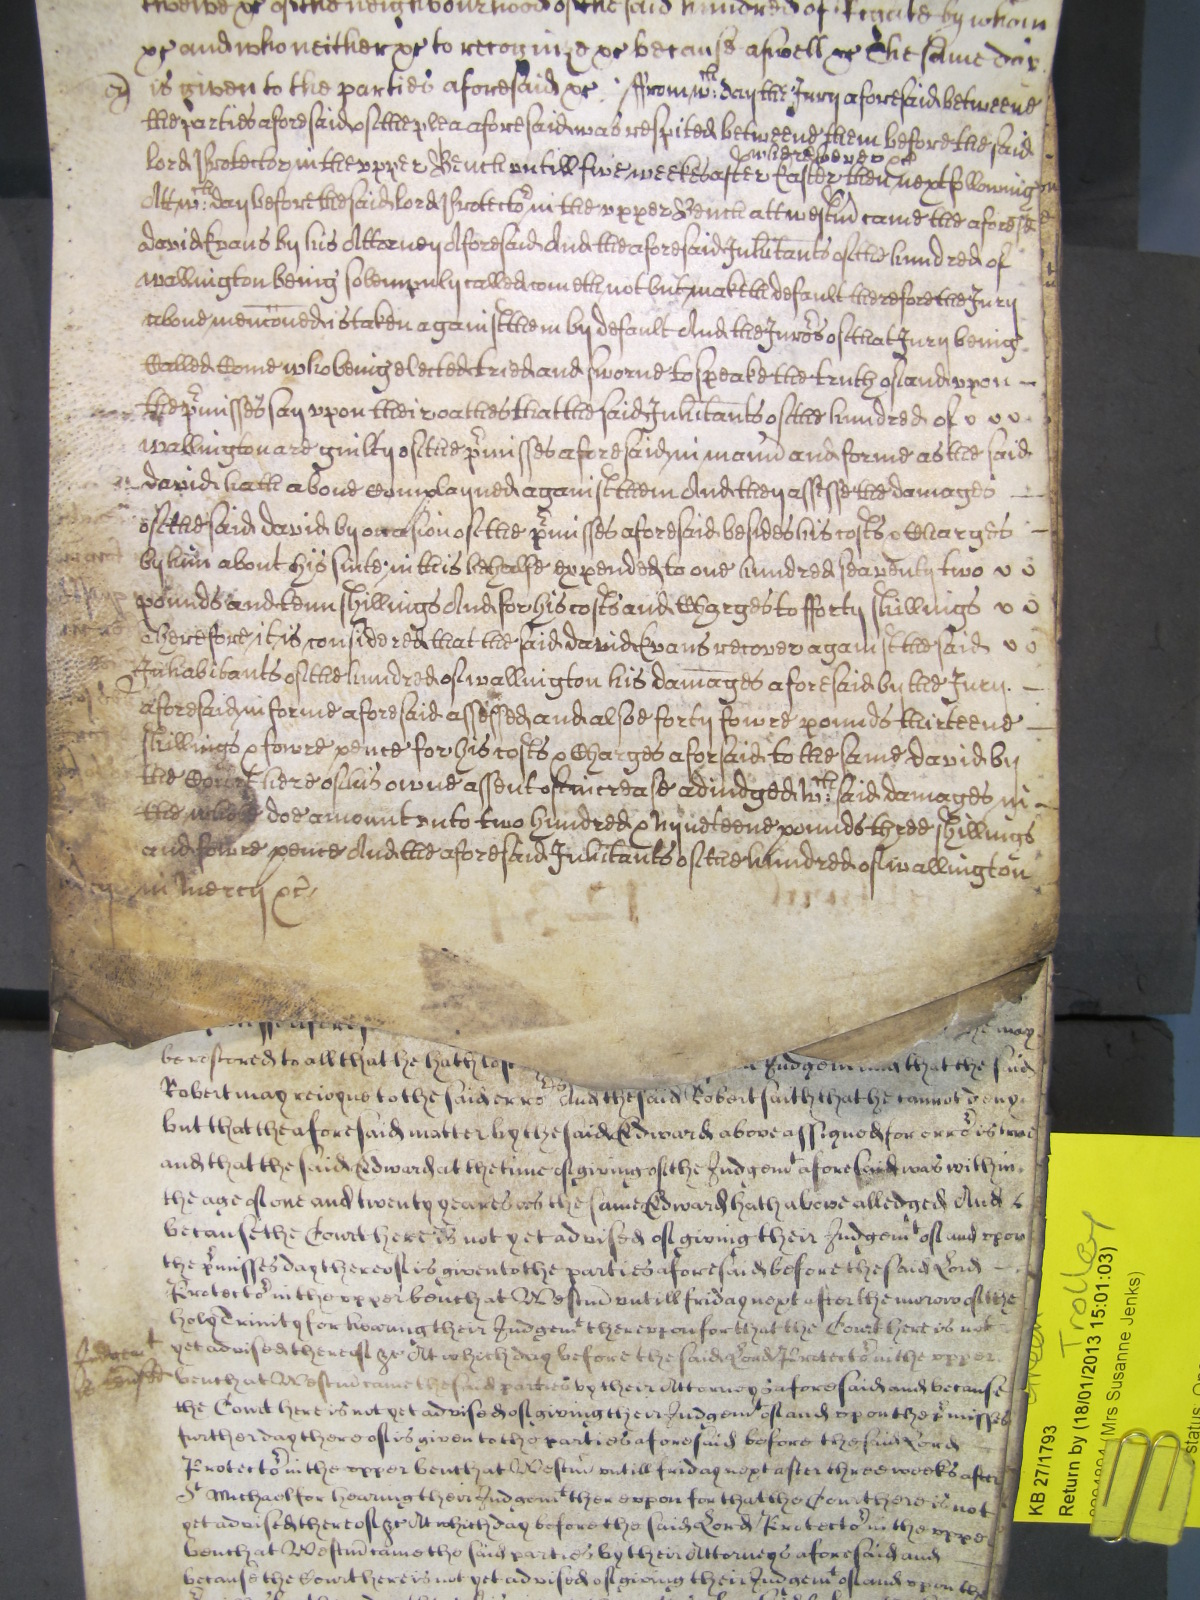 twelve &c of the neighbourhood of the said hundred of Rigate by whom
&c and who neither &c to recognize &c because aswell &c The same day
is given to the parties aforesaid &c. ffrom wch: day the Jury aforesaid betweene
the parties aforesaid of the plea aforesaid was respited betweene them before the said
wheresoever &c
Lord Protector in the upper Bench untill five weekes after Easter then next following
Att wch: day before the said Lord Protector in the upper Bench att westm̃ came the aforesd
david Evans by his Attorney Aforesaid And the aforesaid Inhĩtants of the hundred of
wallington being solempnly called cometh not but maketh default therefore the Jury
above menc̃oned is taken against them by default And the Jurõrs of that Jury being
Called Come who being elected tried and sworne to speake the truth of and upon
the p̃misses say upon their oathes that the said Inhĩtants of the hundred of
wallington are guilty of the p̃misses aforesaid in mann̄ and forme as the said
david hath above Complayned against them And they assesse the damages
of the said david by occasion of the p̃misses aforesaid besides his costs & Charges
by him about his suite in this behalfe expended to one hundred seaventy two
pounds and tenn shillings And for his costs and Charges to fforty shillings
Therefore it is considered that the said david Evans recover against the said
Inhabitants of the hundred of wallington his damages aforesaid by the Jury
aforesaid in forme aforesaid assessed and alsoe forty fowre pounds thirteene
shillings & fowre pence for his costs & Charges aforsaid to the same david by
the Court here of his owne assent of increase adiudged wch: said damages in
the whole doe amount unto two hundred & Nyneteene pounds three shillings
and fowre pence And the aforesaid Inhĩtants of the hundred of wallington
in Mercy &c
he may
be restored to all that he hath lost Judgem that the said
Robert may rejoyne to the said errors And the said Robert saith that he cannot deny
but that the aforesaid matter by the said Edward above assigned for errõr is true
and that the said Edward at the time of giving of the Judgemt aforesaid was within
the age of one and twenty yeares as the same Edward hath above alledged And
because the Court here is not yet advised of giving their Judgemt of and upon
the p̃misses day thereof is given to the parties aforesaid before the said Lord
Protector in the upper bench at Westm̃ untill friday next after the morow of the
holy Trinity for hearing their Judgemt thereupon for that the Court here is not
yet advised thereof &c At which day before the said Lord Protector in the upper
Judgemt
reversed
bench at Westm̃ came the said parties by their Attorneys aforesaid and because
the Court here is not yet advised of giving their Judgemt of and upon the p̃misses
further day thereof is given to the parties aforesaid before the said Lord
Protector in the upper bench at Westm̃ untill friday next after three weeks after
St Michael for hearing their Judgemt thereupon for that the Court here is not
yet advised thereof &c At which day before the said Lord Protector in the upper
bench at Westm̃ came the said parties by their Attorneys aforesaid and
because the Court here is not yet advised of giving their Judgemt of and upon the
Trolley
KB 27/1793
Return by (18/01/2013 15:01:03)
(Mrs Susanne Jenks)